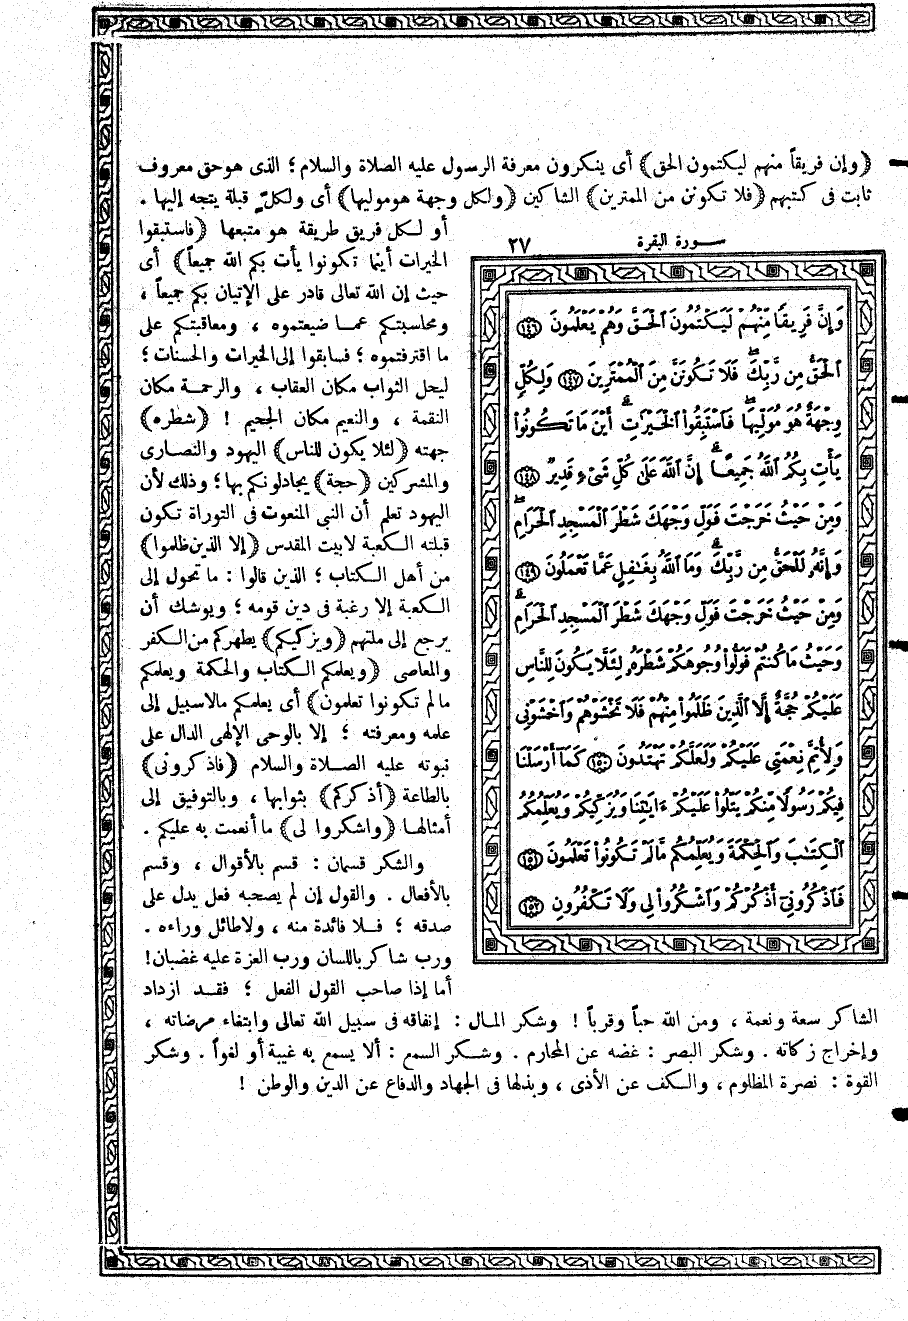 ﴿وإن فريقاً منهم ليكتمون الحق﴾ أى ينكرون معرفة الرسول عليه الصلاة والسلام ؛ الذى هو حق معروف
ثابت فى كتبهم ﴿فلا تكونن من الممترين﴾ الشاكين ﴿ولكل وجهة هو موليها﴾ أى ولكلٍّ قبلة يتجه إليها .
أو لكل فريق طريقة هو متبعها ﴿فاستبقوا
الخيرات أينما تكونوا يأت بكم الله جميعاً﴾ أى
حيث إن الله تعالى قادر على الإتيان بكم جميعاً ،
ومحاسبتكم عما ضيعتموه ، ومعاقبتكم على
ما اقترفتموه ؛ فسابقوا إلى الخيرات والحسنات ؛
ليحل الثواب مكان العقاب ، والرحمة مكان
النقمة ، والنعيم مكان الجحيم ! ﴿شطره﴾
جهته ﴿لئلا يكون للناس﴾ اليهود والنصارى
والمشركين ﴿حجة﴾ يجادلونكم بها ؛ وذلك لأن
اليهود تعلم أن النبى المنعوت فى التوراة تكون
قبلته الكعبة لا بيت المقدس ﴿إلا الذين ظلموا﴾
من أهل الكتاب ؛ الذين قالوا : ما تحول إلى
الكعبة إلا رغبة فى دين قومه ؛ ويوشك أن
يرجع إلى ملتهم ﴿ويزكيكم﴾ يطهركم من الكفر
والمعاصى ﴿ويعلمكم الكتاب والحكمة ويعلمكم
مالم تكونوا تعلمون﴾ أى يعلمكم مالا سبيل إلى
علمه ومعرفته ؛ إلا بالوحى الإلهى الدال على
نبوته عليه الصلاة والسلام ﴿فاذكرونى﴾
بالطاعة ﴿أذكركم﴾ بثوابها ، وبالتوفيق إلى
أمثالها ﴿واشكروا لى﴾ ما أنعمت به عليكم .
والشكر قسمان : قسم بالأقوال ، وقسم
بالأفعال . والقول إن لم يصحبه فعل يدل على
صدقه ؛ فلا فائدة منه ، ولا طائل وراءه .
ورب شاكر باللسان ورب العزة عليه غضبان !
أما إذا صاحب القول الفعل ؛ فقد ازداد
سورة البقرة ٢٧
وَإِنَّ فَرِيقًا مِّنْهُمْ لَيَكْتُمُونَ ٱلْحَقَّ وَهُمْ يَعْلَمُونَ ١٤٦
ٱلْحَقُّ مِن رَّبِّكَ فَلَا تَكُونَنَّ مِنَ ٱلْمُمْتَرِينَ ١٤٧ وَلِكُلٍّ
وِجْهَةٌ هُوَ مُوَلِّيهَا فَٱسْتَبِقُوا۟ ٱلْخَيْرَٰتِ أَيْنَ مَا تَكُونُوا۟
يَأْتِ بِكُمُ ٱللَّهُ جَمِيعًا إِنَّ ٱللَّهَ عَلَىٰ كُلِّ شَىْءٍ قَدِيرٌ ١٤٨
وَمِنْ حَيْثُ خَرَجْتَ فَوَلِّ وَجْهَكَ شَطْرَ ٱلْمَسْجِدِ ٱلْحَرَامِ
وَإِنَّهُۥ لَلْحَقُّ مِن رَّبِّكَ وَمَا ٱللَّهُ بِغَٰفِلٍ عَمَّا تَعْمَلُونَ ١٤٩
وَمِنْ حَيْثُ خَرَجْتَ فَوَلِّ وَجْهَكَ شَطْرَ ٱلْمَسْجِدِ ٱلْحَرَامِ
وَحَيْثُ مَا كُنتُمْ فَوَلُّوا۟ وُجُوهَكُمْ شَطْرَهُۥ لِئَلَّا يَكُونَ لِلنَّاسِ
عَلَيْكُمْ حُجَّةٌ إِلَّا ٱلَّذِينَ ظَلَمُوا۟ مِنْهُمْ فَلَا تَخْشَوْهُمْ وَٱخْشَوْنِى
وَلِأُتِمَّ نِعْمَتِى عَلَيْكُمْ وَلَعَلَّكُمْ تَهْتَدُونَ ١٥٠ كَمَآ أَرْسَلْنَا
فِيكُمْ رَسُولًا مِّنكُمْ يَتْلُوا۟ عَلَيْكُمْ ءَايَٰتِنَا وَيُزَكِّيكُمْ وَيُعَلِّمُكُمُ
ٱلْكِتَٰبَ وَٱلْحِكْمَةَ وَيُعَلِّمُكُم مَّا لَمْ تَكُونُوا۟ تَعْلَمُونَ ١٥١
فَٱذْكُرُونِىٓ أَذْكُرْكُمْ وَٱشْكُرُوا۟ لِى وَلَا تَكْفُرُونِ ١٥٢
الشاكر سعة ونعمة ، ومن الله حباً وقرباً ! وشكر المال : إنفاقه فى سبيل الله تعالى وابتغاء مرضاته ،
وإخراج زكاته . وشكر البصر : غضه عن المحارم . وشكر السمع : ألا يسمع به غيبة أو لغواً . وشكر
القوة : نصرة المظلوم ، والكف عن الأذى ، وبذلها فى الجهاد والدفاع عن الدين والوطن !